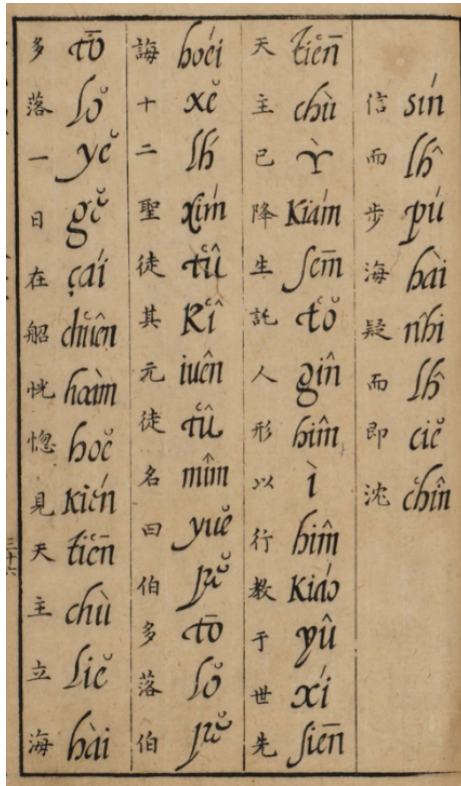 信而步海疑而即沈
sín lĥ pú hài nĥi lĥ ciĕ chîn
天主已降生託人形以行教于世先
tiēn chù ỳ kiám sēm tŏ gîn hîm ì hîm kiáo yû xí siēn
誨十二聖徒其元徒名曰伯多落伯
hoéi xĕ lh́ xím tû kî iuên tû mîm yuĕ pĕ tō lŏ pĕ
多落一日在船恍惚見天主立海
tō lŏ yĕ gĕ çaí chuên hoàm hoĕ kién tiēn chù liĕ hài
三十六